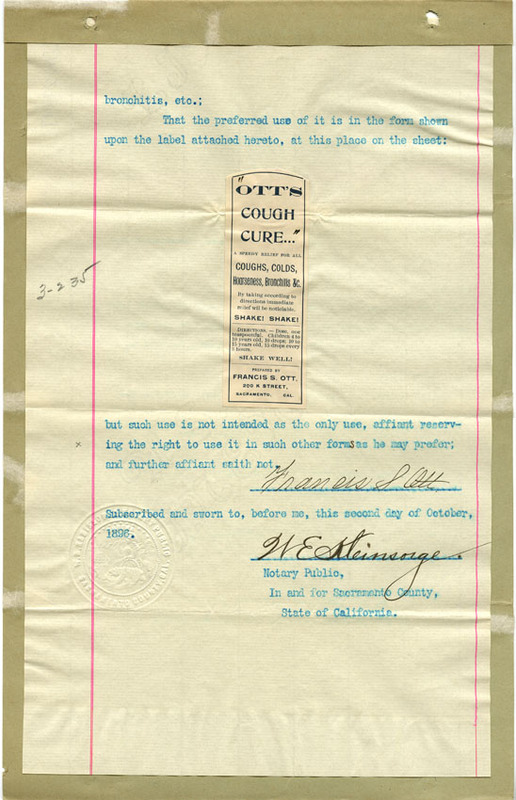 bronchitis, etc.;
That the preferred use of it is in the form shown
upon the label attached hereto, at this place on the sheet:
"OTT'S
COUGH
CURE..."
A SPEEDY RELIEF FOR ALL
COUGHS, COLDS,
Hoarseness, Bronchitis &c.
By taking according to
directions immediate
relief will be noticiable.
SHAKE! SHAKE!
DIRECTIONS.—Dose, one
teaspoonful. Children 4 to
10 years old, 10 drops; 10 to
15 years old, 15 drops every
3 hours.
SHAKE WELL!
PREPARED BY
FRANCIS S. OTT.
200 K STREET,
SACRAMENTO, CAL.
3-235
but such use is not intended as the only use, affiant reserv-
ing the right to use it in such other forms as he may prefer;
and further affiant saith not.
Francis S Ott
Subscribed and sworn to, before me, this second day of October,
1896.
W E Kleinsorge.
Notary Public,
In and for Sacramento County,
State of California.